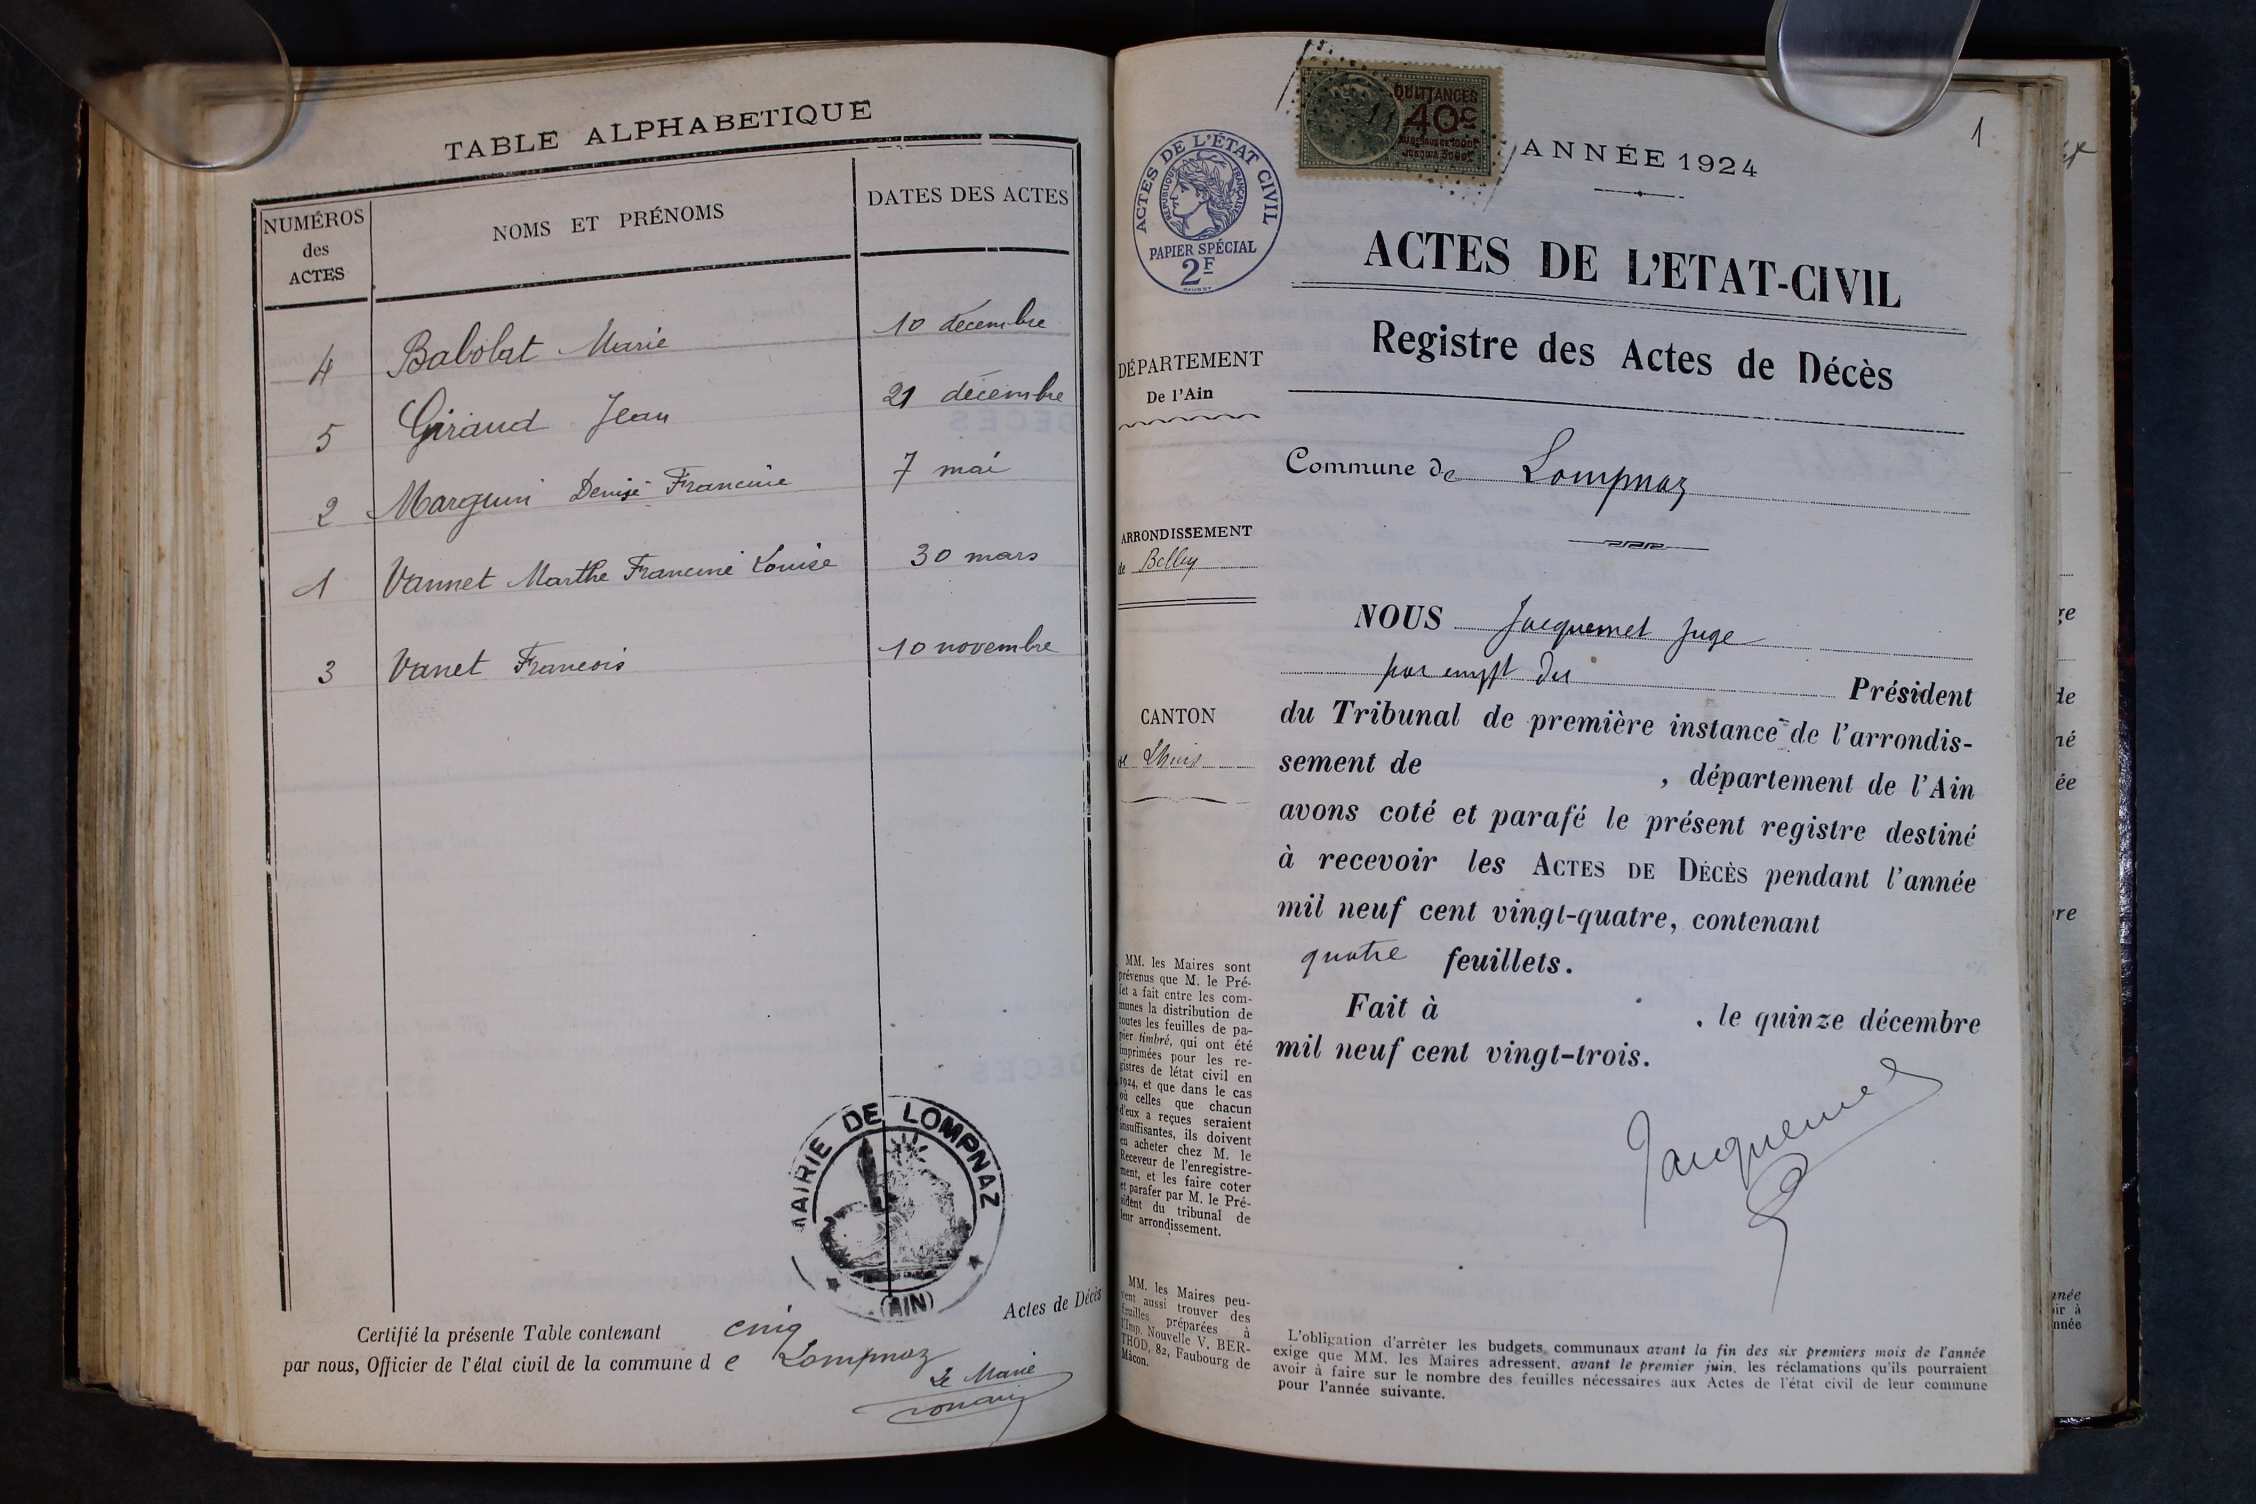 TABLE ALPHABETIQUE
NUMÉROS
des
ACTES
NOMS ET PRÉNOMS
DATES DES ACTES
4 Babolat Marie 10 décembre
5 Giraud Jean 21 décembre
2 Marguin Denise Francine 7 mai
1 Vannet Marthe Francine Louise 30 mars
3 Vanet Francois 10 novembre
MAIRIE DE LOMPNAZ
(AIN)
Certifié la présente Table contenant cinq Actes de Décès
par nous, Officier de l'état civil de la commune de Lompnaz
Le Maire
1
QUITTANCES
40c
ANNÉE 1924
ACTES DE L'ÉTAT CIVIL
RÉPUBLIQUE FRANÇAISE
PAPIER SPÉCIAL
2F
ACTES DE L'ETAT-CIVIL
Registre des Actes de Décès
DÉPARTEMENT
De l'Ain
Commune de Lompnaz
ARRONDISSEMENT
de Belley
CANTON
de Lhuis
NOUS Jacquemet Juge
par empt du Président
du Tribunal de première instance de l'arrondis-
sement de , département de l'Ain
avons coté et parafé le présent registre destiné
à recevoir les ACTES DE DÉCÈS pendant l'année
mil neuf cent vingt-quatre, contenant
quatre feuillets.
Fait à , le quinze décembre
mil neuf cent vingt-trois.
Jacquemet
MM. les Maires sont
prévenus que M. le Pré-
fet a fait entre les com-
munes la distribution de
toutes les feuilles de pa-
pier timbré, qui ont été
imprimées pour les re-
gistres de létat civil en
1924, et que dans le cas
où celles que chacun
d'eux a reçues seraient
insuffisantes, ils doivent
en acheter chez M. le
Receveur de l'enregistre-
ment, et les faire coter
et parafer par M. le Pré-
sident du tribunal de
leur arrondissement.
MM. les Maires peu-
vent aussi trouver des
feuilles préparées à
l'Imp. Nouvelle V. BER-
THOD, 82, Faubourg de
Mâcon.
L'obligation d'arrêter les budgets communaux avant la fin des six premiers mois de l'année
exige que MM. les Maires adressent, avant le premier juin, les réclamations qu'ils pourraient
avoir à faire sur le nombre des feuilles nécessaires aux Actes de l'état civil de leur commune
pour l'année suivante.